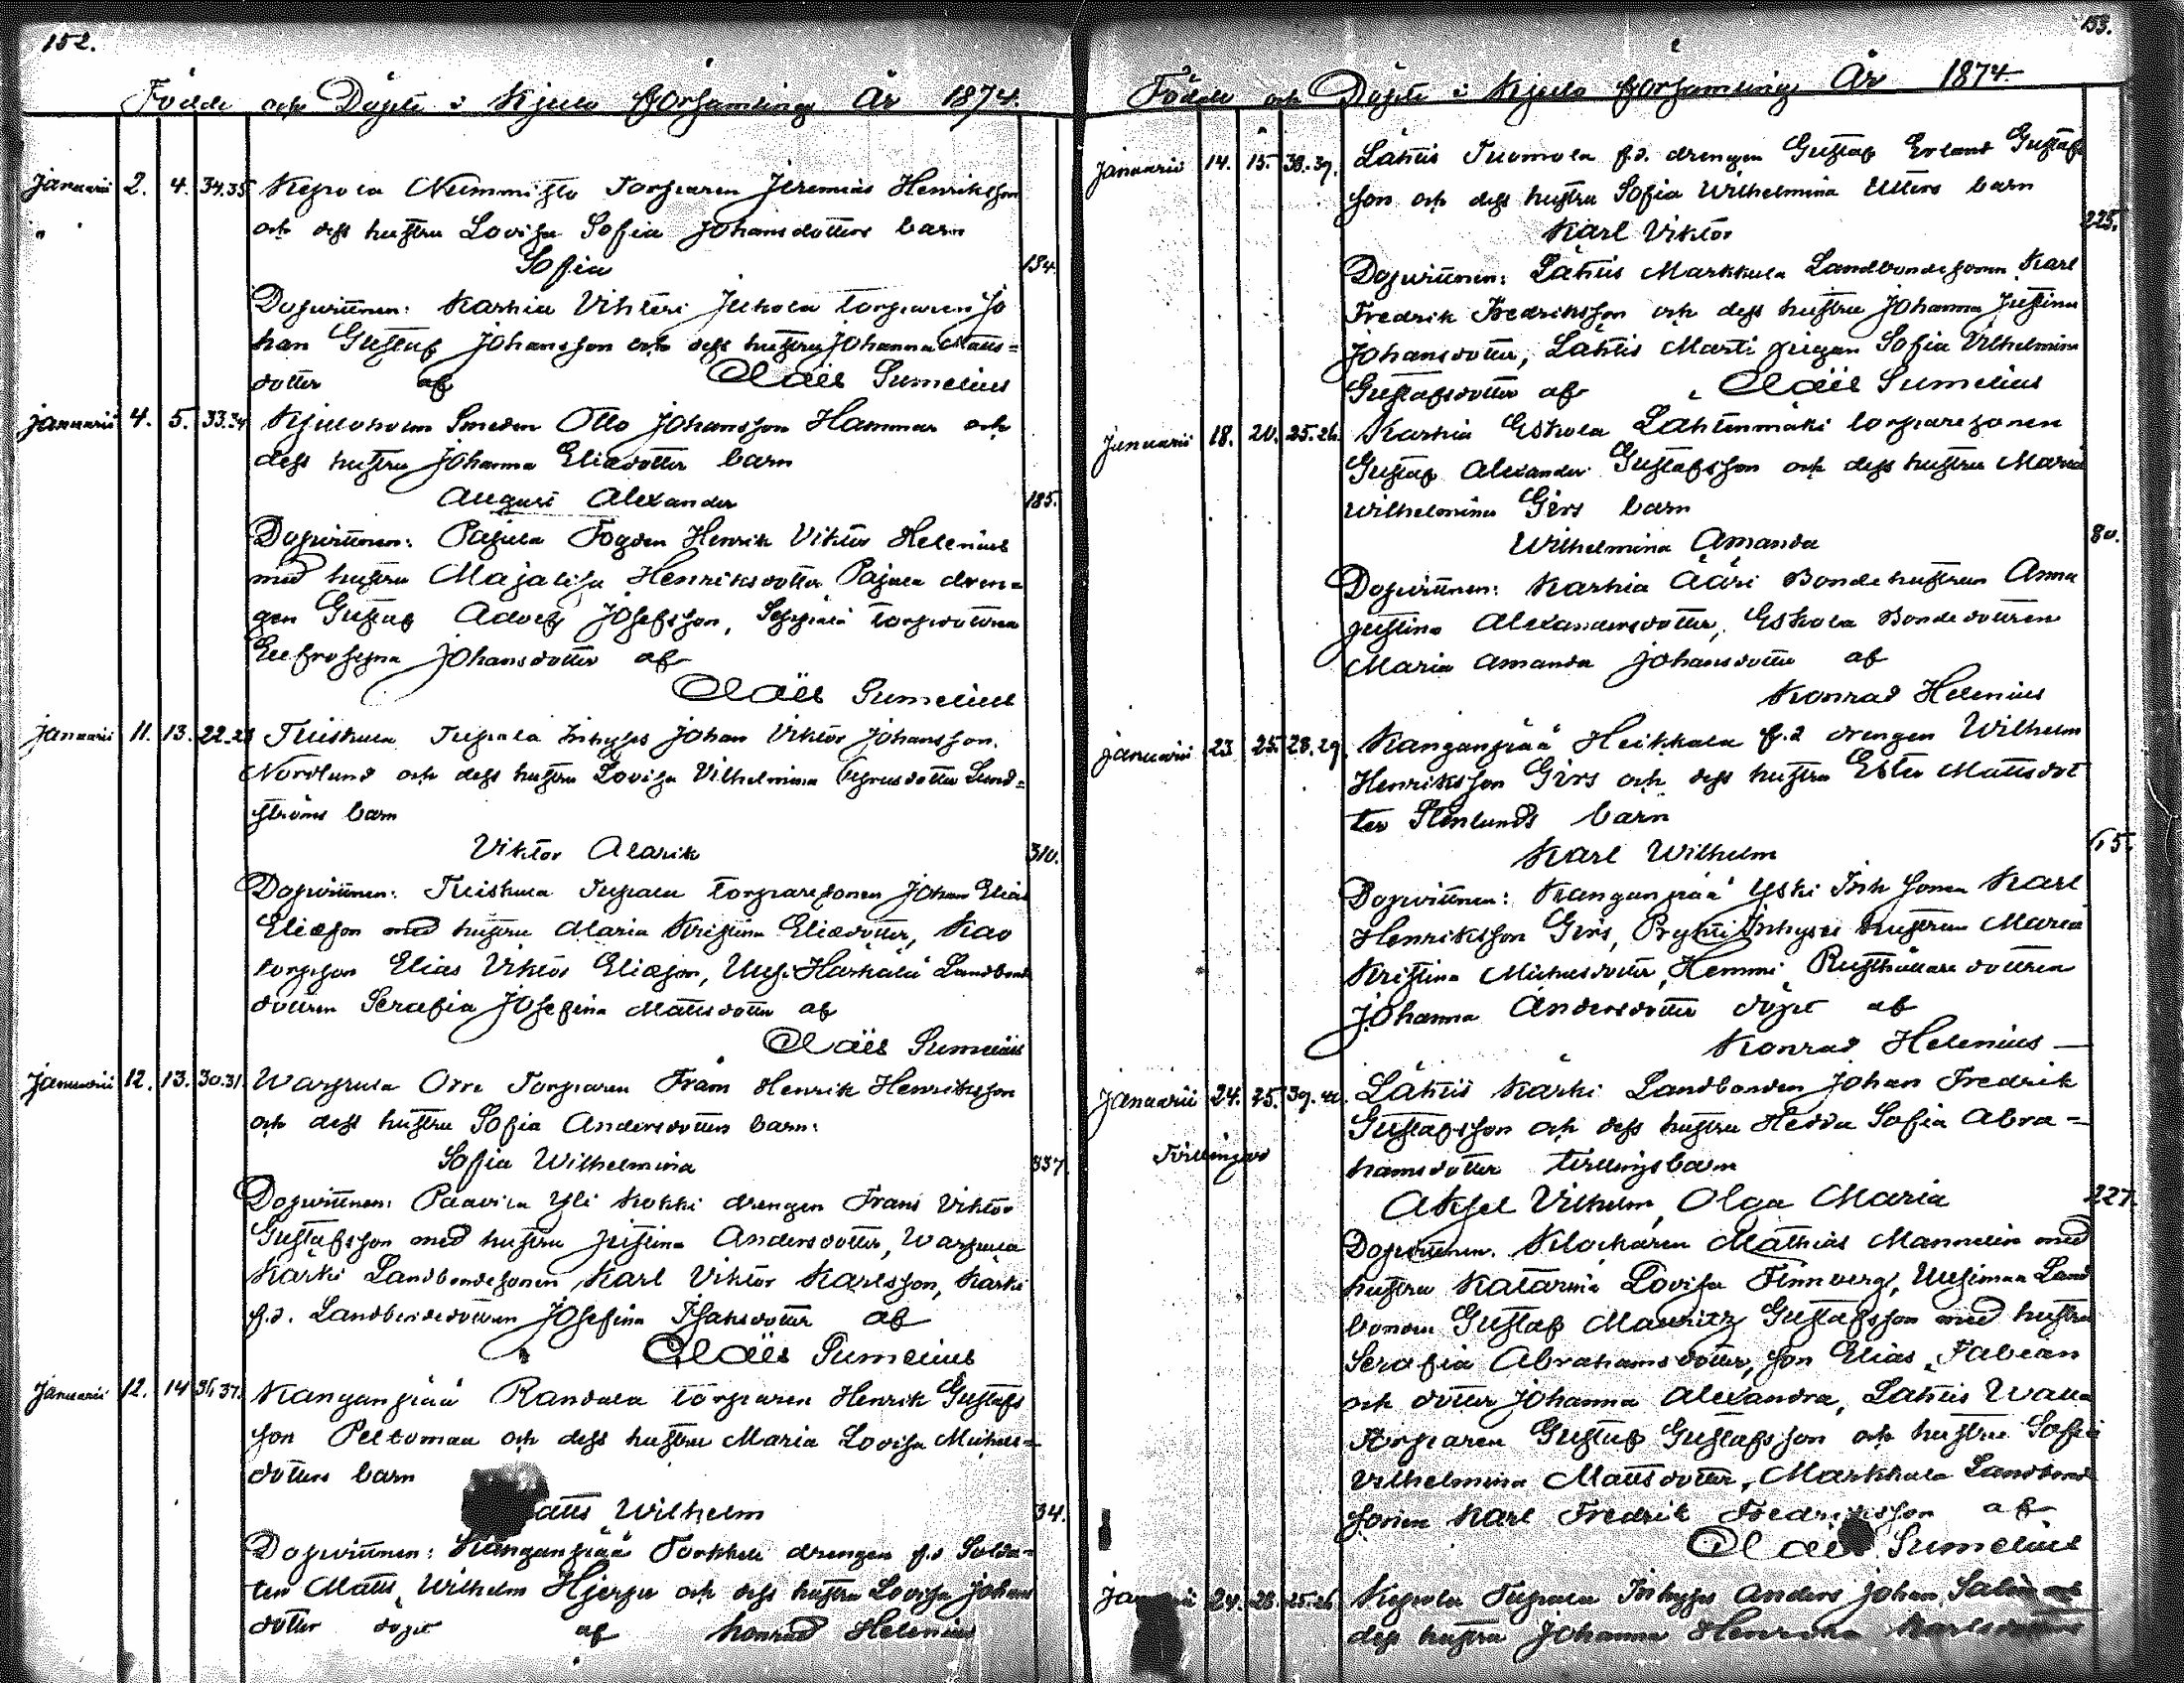 152.
Födde och Döpte i Kjulo Församling År 1874.
Januarii 2. 4. 34.35 Kepola Nummisto Torparen Jeremias Henriksson
och dess hustru Lovisa Sofia Johansdotters barn
Sofia 134.
Dopvittnen: Karhia Vihteri Juhola torparen Jo
han Gustaf Johansson och dess hustru Johanna Matts=
dotter af Claës Sumelius
Januarii 4. 5. 33.34 Kjuloholm Smeden Otto Johansson Hammar och
dess hustru Johanna Eliædotter barn
August Alexander 185.
Dopvittnen: Pajula Fogden Henrik Viktor Helenius
med hustru Majalisa Henriksdotter Pajula dren=
gen Gustaf Adolf Josefsson, Seppälä torpdottren
Eufrosyna Johansdotter af
Claës Sumelius
Januarii 11. 13. 22.23 Tuiskula Tupala Inhyses Johan Viktor Johansson
Nordlund och dess hustru Lovisa Vilhelmina Lund=
ströms barn
Viktor Alarik 310.
Dopvittnen: Tuiskula Tupala torparesonen Johan Elias
Eliæson med hustru Maria Kristina Eliædotter, Kao
torpson Elias Viktor Eliæson, Uusi-Harkälä Landbonde
dottren Serafia Josefina Mattsdotter af
Claës Sumelius
Januarii 12. 13. 30.31. Warpula Orri Torparen Fram Henrik Henriksson
och dess hustru Sofia Andersdotters barn:
Sofia Wilhelmina 337.
Dopvittnen: Paavila Yli Kokki drengen Frans Viktor
Gustafsson med hustru Justina Andersdotter, Warpula
Kärki Landbondesonen Karl Viktor Karlsson, Kärki
f.d. Landbondedottren Josefina Isaksdotter af
Claës Sumelius
Januarii 12. 14 36.37. Kanganpää Randala torparen Henrik Gustafs
son Peltomaa och dess hustru Maria Lovisa Michels=
dotters barn
Wilhelm 34.
Dopvittnen: Kanganpää Torkkeli drengen f.d Solda=
ten Matts Wilhelm Hjerpe och dess hustru Lovisa Johans
dotter döpt af Konrad Helenius
153.
Födde och Döpte i Kjulo Församling År 1874.
Januarii 14. 15. 38.39. Lähtis Tuomola f.d. drengen Gustaf Erland Gustafs
son och dess hustru Sofia Wilhelmina Utters barn
Karl Viktor 225.
Dopvittnen: Lähtis Markkula Landbondesonen Karl
Fredrik Fredriksson och dess hustru Johanna Justina
Johansdotter, Lähtis Martti pigan Sofia Vilhelmina
Gustafsdotter af Claës Sumelius
Januarii 18. 20. 25.26. Karhia Eskola Lähtenmäki torparesonen
Gustaf Alexander Gustafsson och dess hustru Maria
Wilhelmina Girs barn
Wilhelmina Amanda 80.
Dopvittnen: Karhia Ääri Bondehustrun Anna
Justina Alexandersdotter, Eskola Bondedottren
Maria Amanda Johansdotter af
Konrad Helenius
Januarii 23 25. 28.29. Kanganpää Heikkala f.d drengen Wilhelm
Henriksson Girs och dess hustru Ester Mattsdot
ter Stenlunds barn
Karl Wilhelm 15.
Dopvittnen: Kanganpää Yski Inh sonen Karl
Henriksson Girs, Prykti Inhyses hustrun Maria
Kristina Michelsdotter, Hemmi Rusthållare dottren
Johanna Andersdotter döpt af
Konrad Helenius
Januarii 24. 25. 39.40. Lähtis Kärki Landbonden Johan Fredrik
Gustafsson och dess hustru Hedda Sofia Abra=
Tvillingar hamsdotter tvillingsbarn
Aksel Vilhelm, Olga Maria 227.
Dopvittnen. Klockaren Mathias Mannelin med
hustru Katarina Lovisa Finnberg, Uusimaa Land
bonden Gustaf Mauritz Gustafsson med hustru
Serafia Abrahamsdotter, son Elias Fabian
och dotter Johanna Alexandra, Lähtis
Torparen Gustaf Gustafsson och hustru Sofia
Vilhelmina Mattsdotter, Markkula Landbond
sonen Karl Fredrik Fredriksson af
Claës Sumelius
24. 28. 25.26 Kepola Tupala Inhyses Anders Johan
dess hustru Johanna Henrika